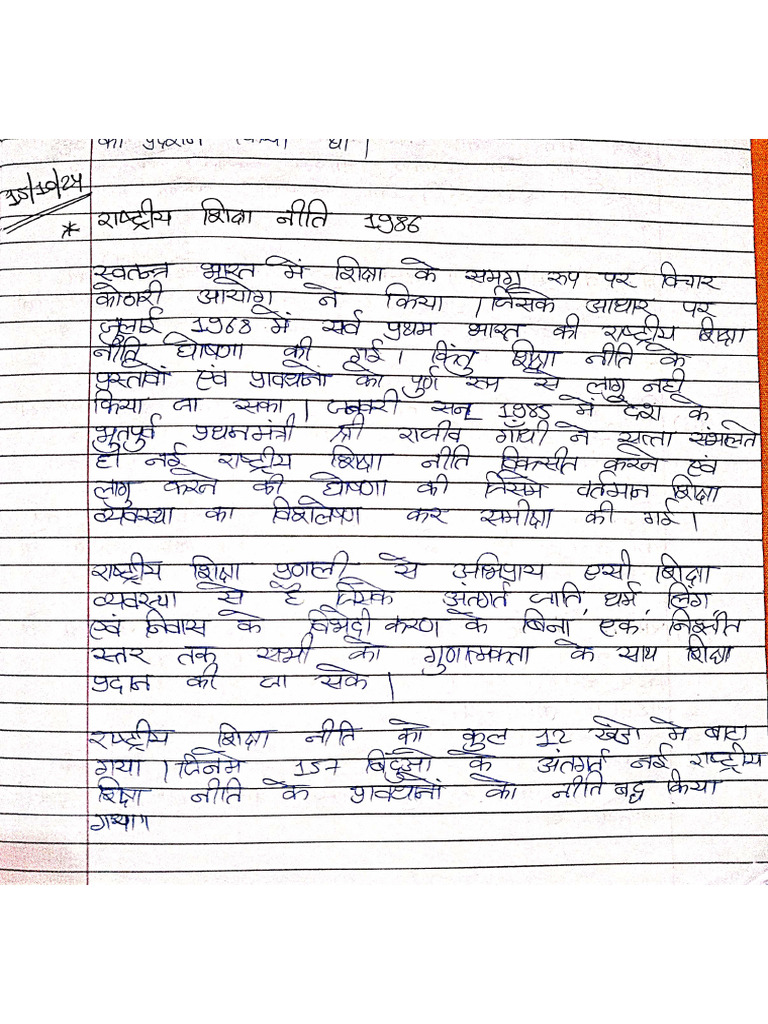 15/10/24
* राष्ट्रीय शिक्षा नीति 1986
स्वतन्त्र भारत में शिक्षा के समग्र रुप पर विचार
कोठारी आयोग ने किया । जिसके आधार पर
जुलाई 1968 में सर्व प्रथम भारत की राष्ट्रीय शिक्षा
नीति घोषणा की गई । किंतु शिक्षा नीति के
प्रस्तावों एवं प्रावधानों को पुर्ण रूप से लागु नही
किया जा सका । जनवरी सन् 1985 में देश के
भुतपुर्व प्रधानमंत्री श्री राजीव गाँधी ने सत्ता संभलते
ही नई राष्ट्रीय शिक्षा नीति विकसीत करने एवं
लागु करने की घोषणा की जिसमे वर्तमान शिक्षा
व्यवस्था का विशलेषण कर समीक्षा की गई ।
राष्ट्रीय शिक्षा प्रणाली से अभिप्राय एसी शिक्षा
व्यवस्था से है जिसके अंतर्गत जाति, धर्म, लिंग
एवं निवास के विभेदीकरण के बिना एक निश्चीत
स्तर तक सभी को गुणात्मकता के साथ शिक्षा
प्रदान की जा सके ।
राष्ट्रीय शिक्षा नीति को कुल 12 खंडो मे बाटा
गया । जिनमे 157 बिंदुओ के अंतर्गत नई राष्ट्रीय
शिक्षा नीति के प्रावधानों को नीति बद्ध किया
गया।